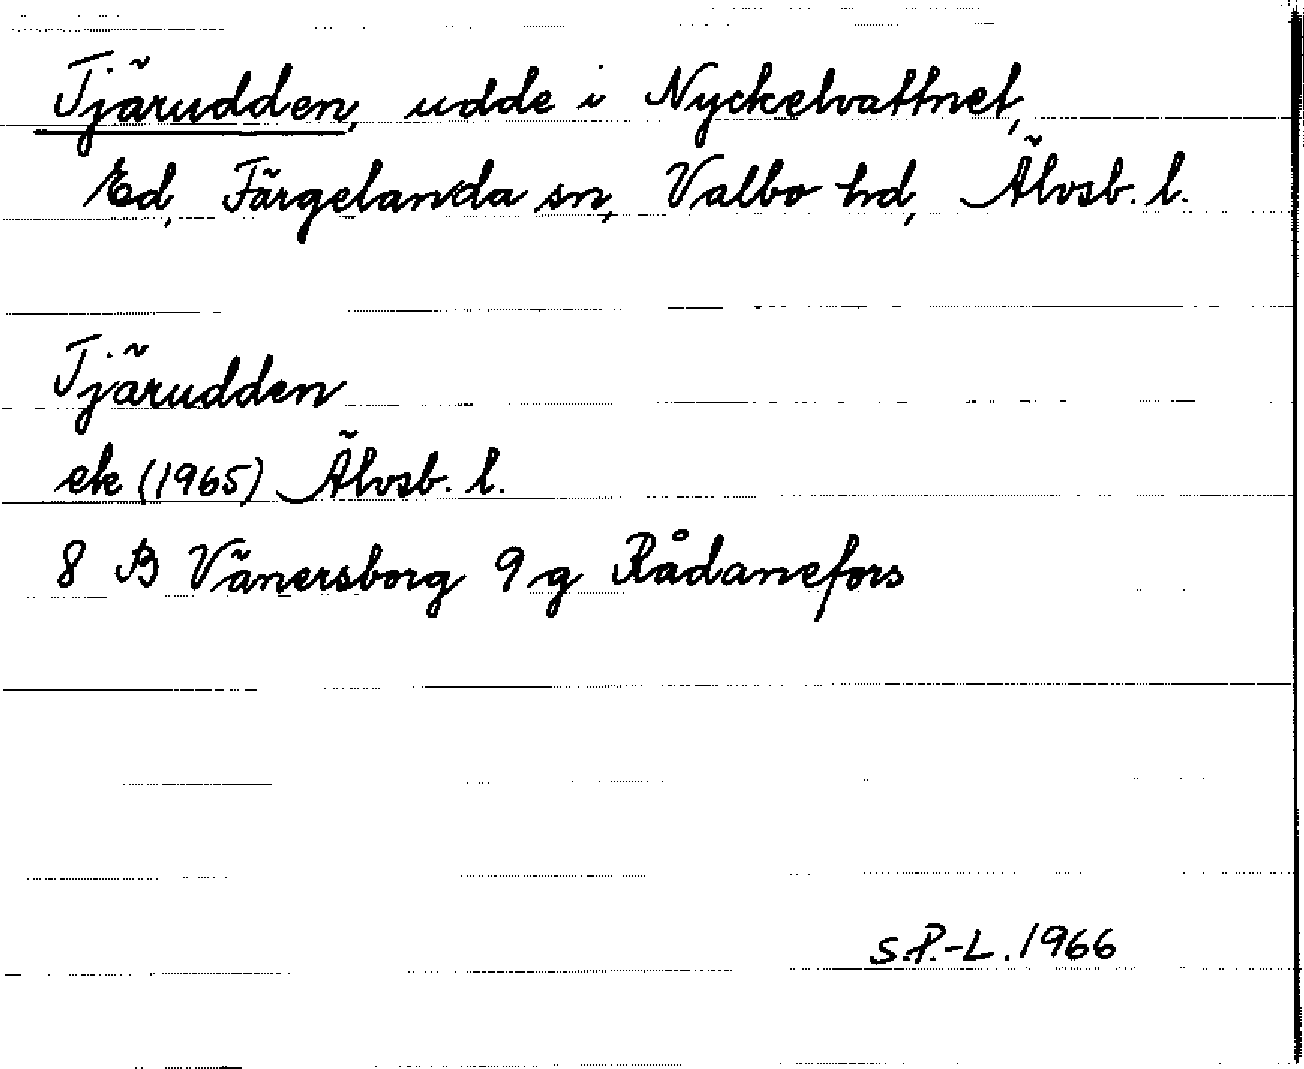 Tjärudden, udde i Nyckelvattnet,
Ed, Färgelanda sn, Valbo hd, Älvsb. l.
Tjärudden
ek (1965) Älvsb. l.
8 B Vänersborg 9 g Rådanefors
S.P.-L. 1966